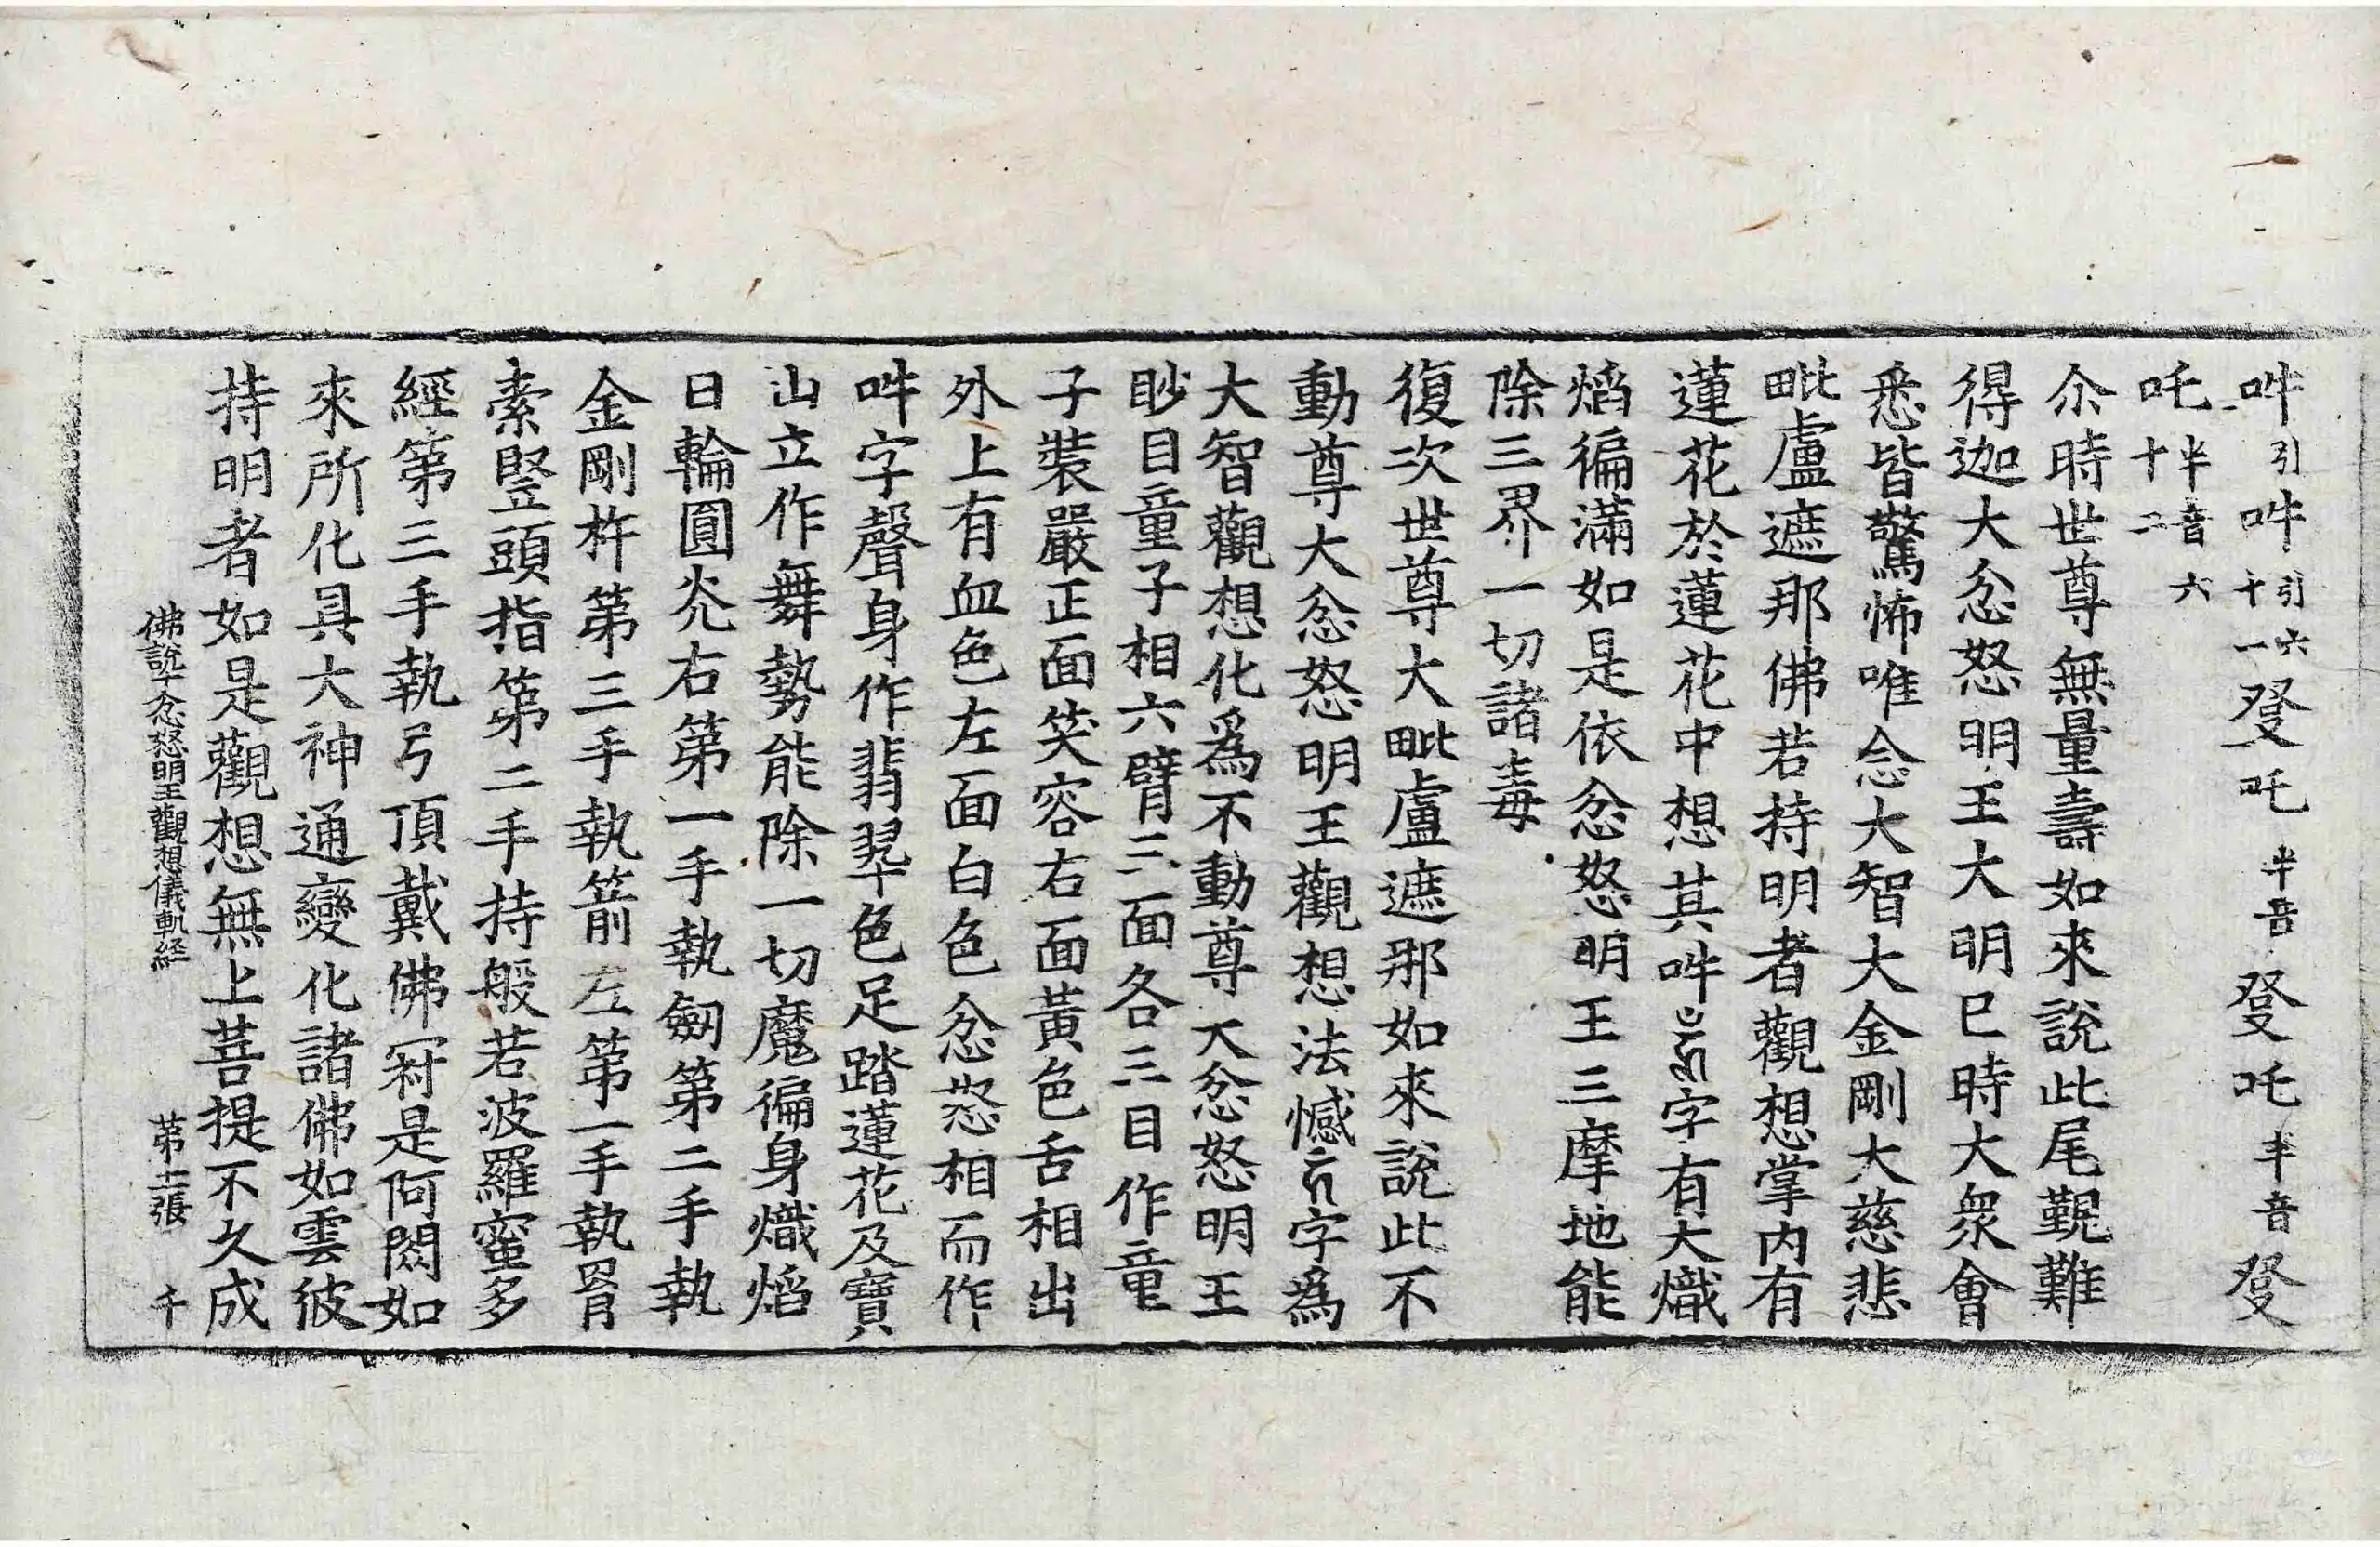 吽引吽引六十一癹吒半音癹吒半音癹
吒半音六十二
尒時世尊無量壽如來說此尾覲難
得迦大忿怒明王大明已時大衆會
悉皆驚怖唯念大智大金剛大慈悲
毗盧遮那佛若持明者觀想掌內有
蓮花於蓮花中想其吽字有大熾
焰徧滿如是依忿怒明王三摩地能
除三界一切諸毒
復次世尊大毗盧遮那如來說此不
動尊大忿怒明王觀想法憾字爲
大智觀想化爲不動尊大忿怒明王
眇目童子相六臂三面各三目作童
子裝嚴正面笑容右面黃色舌相出
外上有血色左面白色忿怒相而作
吽字聲身作翡翠色足踏蓮花及寶
山立作舞勢能除一切魔徧身熾焰
日輪圓光右第一手執劒第二手執
金剛杵第三手執箭左第一手執罥
索竪頭指第二手持般若波羅蜜多
經第三手執弓頂戴佛冠是阿閦如
來所化具大神通變化諸佛如雲彼
持明者如是觀想無上菩提不久成
佛說十忿怒明王觀想儀軌経 第十二張 千